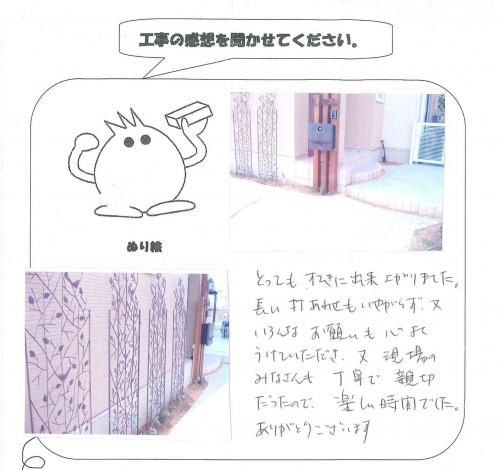 工事の感想を聞かせてください。
ぬり絵
とっても すてきに出来上がりました。
長い打あわせもいやがらず、又
いろんな お願いも 心よく
うけていただき、又 現場の
みなさんも 丁寧で 親切
だったので、楽しい時間でした。
ありがとうございます